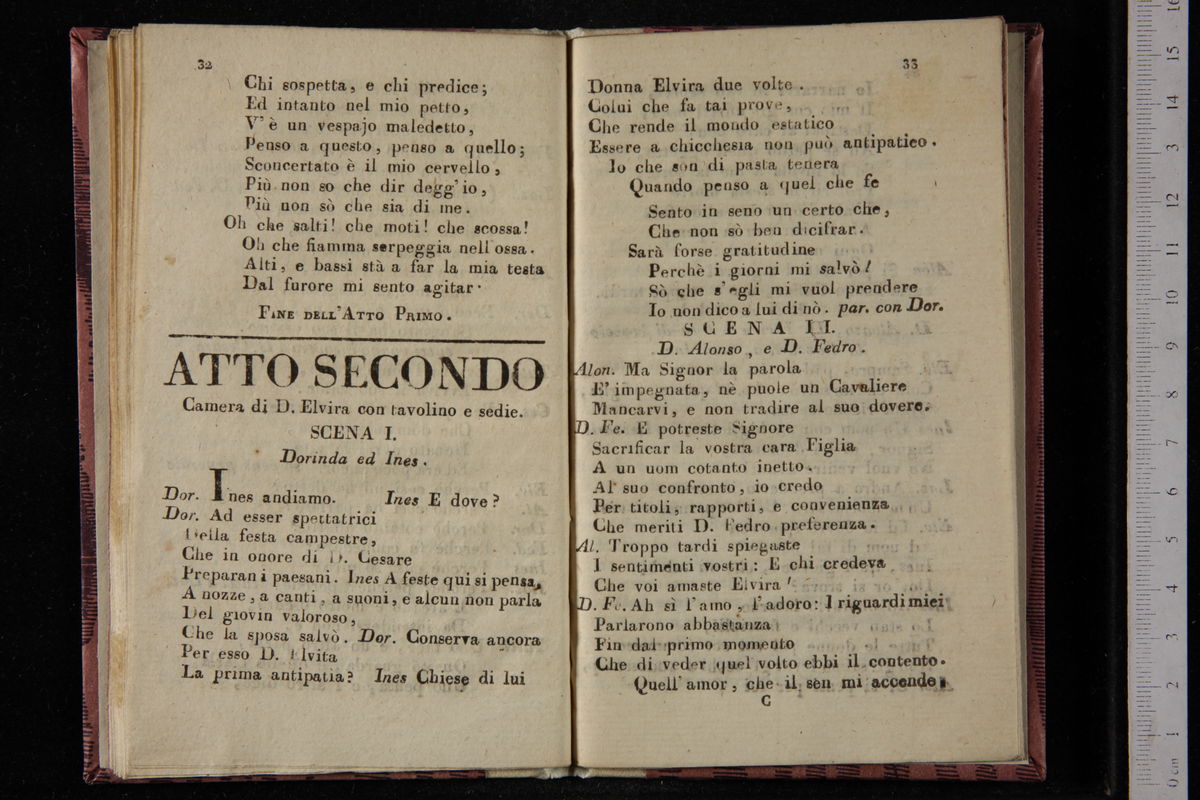 32
Chi sospetta, e chi predice;
Ed intanto nel mio petto,
V' è un vespajo maledetto,
Penso a questo, penso a quello;
Sconcertato è il mio cervello,
Più non so che dir degg' io,
Più non sò che sia di me.
Oh che salti! che moti! che scossa!
Oh che fiamma serpeggia nell'ossa.
Alti, e bassi stà a far la mia testa
Dal furore mi sento agitar.
FINE DELL'ATTO PRIMO.
ATTO SECONDO
Camera di D. Elvira con tavolino e sedie.
SCENA I.
Dorinda ed Ines.
Dor. Ines andiamo. Ines E dove?
Dor. Ad esser spettatrici
Della festa campestre,
Che in onore di D. Cesare
Preparan i paesani. Ines A feste qui si pensa,
A nozze, a canti, a suoni, e alcun non parla
Del giovin valoroso,
Che la sposa salvò. Dor. Conserva ancora
Per esso D. Elvita
La prima antipatia? Ines Chiese di lui
33
Donna Elvira due volte.
Colui che fa tai prove,
Che rende il mondo estatico
Essere a chicchesia non può antipatico.
Io che son di pasta tenera
Quando penso a quel che fe
Sento in seno un certo che,
Che non sò ben dicifrar.
Sarà forse gratitudine
Perchè i giorni mi salvò!
Sò che s' egli mi vuol prendere
Io non dico a lui di nò. par. con Dor.
SCENA II.
D. Alonso, e D. Fedro.
Alon. Ma Signor la parola
E' impegnata, nè puole un Cavaliere
Mancarvi, e non tradire al suo dovere.
D. Fe. E potreste Signore
Sacrificar la vostra cara Figlia
A un uom cotanto inetto.
Al suo confronto, io credo
Per titoli, rapporti, e convenienza
Che meriti D. Fedro preferenza.
Al. Troppo tardi spiegaste
I sentimenti vostri: E chi credeva
Che voi amaste Elvira!
D. Fe. Ah sì l'amo, l'adoro: I riguardi miei
Parlarono abbastanza
Fin dal primo momento
Che di veder quel volto ebbi il contento.
Quell' amor, che il sen mi accende,
C
0 cm 1 2 3 4 5 6 7 8 9 10 11 12 13 14 15 16